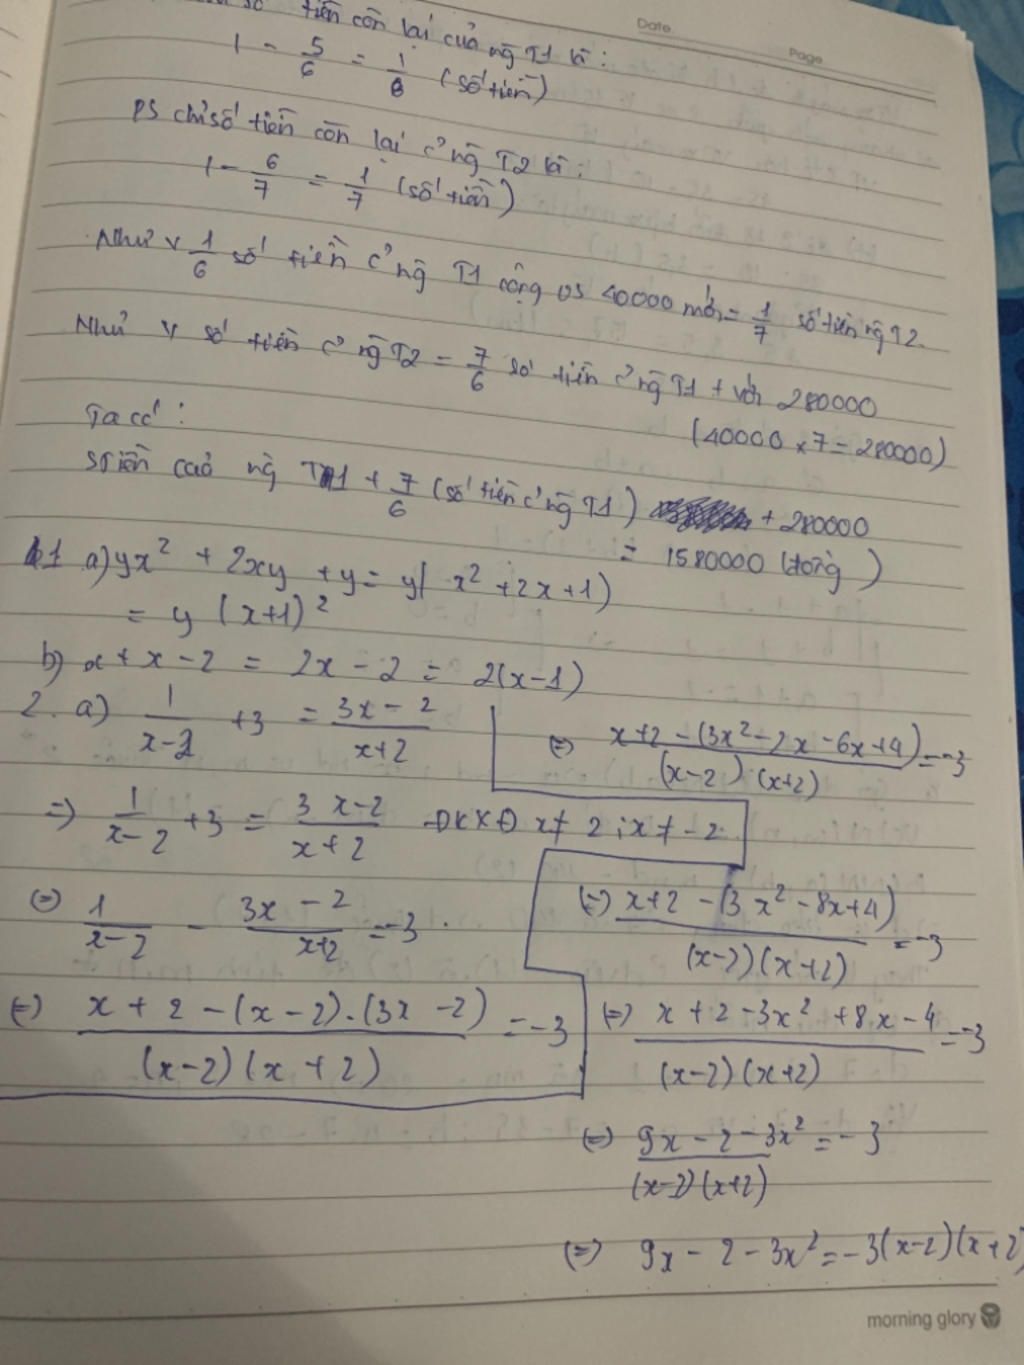 Date.
Page
số tiền còn lại của ng T1 là:
1 - 5/6 = 1/6 (số tiền)
PS chỉ số tiền còn lại củ ng T2 là:
1 - 6/7 = 1/7 (số tiền)
Như v 1/6 số tiền củ ng T1 cộng vs 40000 mới = 1/7 số tiền ng T2.
Như v số tiền củ ng T2 = 7/6 số tiền củ ng T1 + với 280000
(40000 x 7 = 280000)
Ta có:
ng T1 + 7/6 (số tiền củ ng T1) + 280000
= 1580000 (đồng)
1 a) yx² + 2xy + y = y( x² + 2x + 1)
= y (x+1)²
b) x + x - 2 = 2x - 2 = 2(x-1)
2. a) 1/(x-2) + 3 = (3x - 2)/(x+2)
=> 1/(x-2) + 3 = (3x-2)/(x+2) ĐKXĐ x ≠ 2 ; x ≠ -2
(=) 1/(x-2) - (3x - 2)/(x+2) = -3.
(=) (x + 2 - (x - 2).(3x - 2))/((x-2)(x+2)) = -3
(=) (x+2 - (3x² - 2x - 6x + 4))/((x-2).(x+2)) = -3
(=) (x+2 - (3x² - 8x + 4))/((x-2)(x+2)) = -3
(=) (x + 2 - 3x² + 8x - 4)/((x-2)(x+2)) = -3
(=) (9x - 2 - 3x²)/((x-2)(x+2)) = -3
(=) 9x - 2 - 3x² = -3(x-2)(x+2)
morning glory